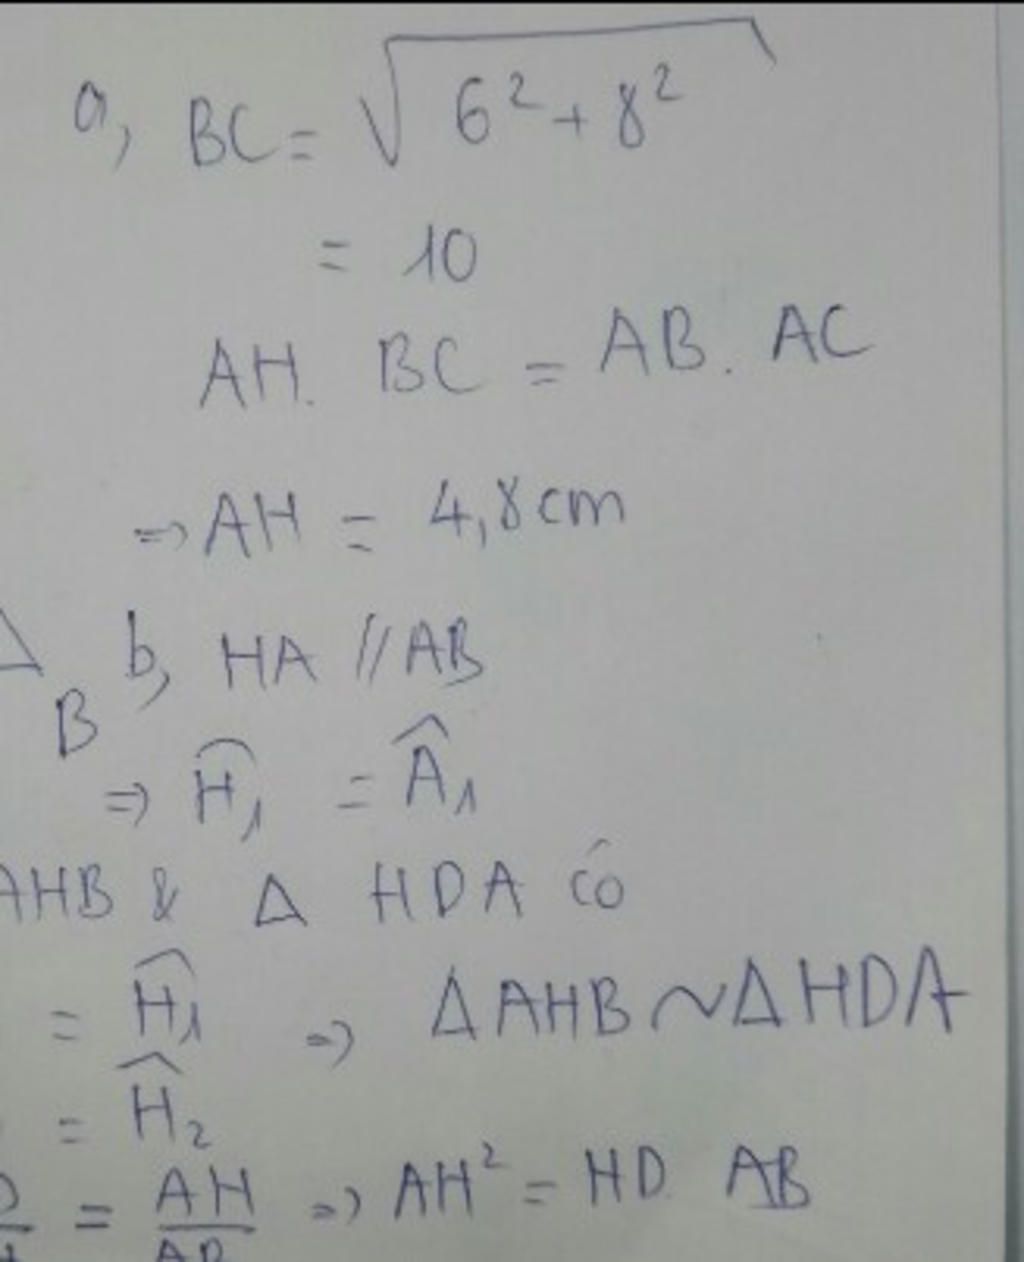 a, BC = √6² + 8²
= 10
AH. BC = AB. AC
=> AH = 4,8cm
b, HA // AB
B
=> Ĥ₁ = Â₁
AHB & Δ HDA có
= Ĥ₁ => Δ AHB ~ Δ HDA
= Ĥ₂
= AH/AB => AH² = HD. AB